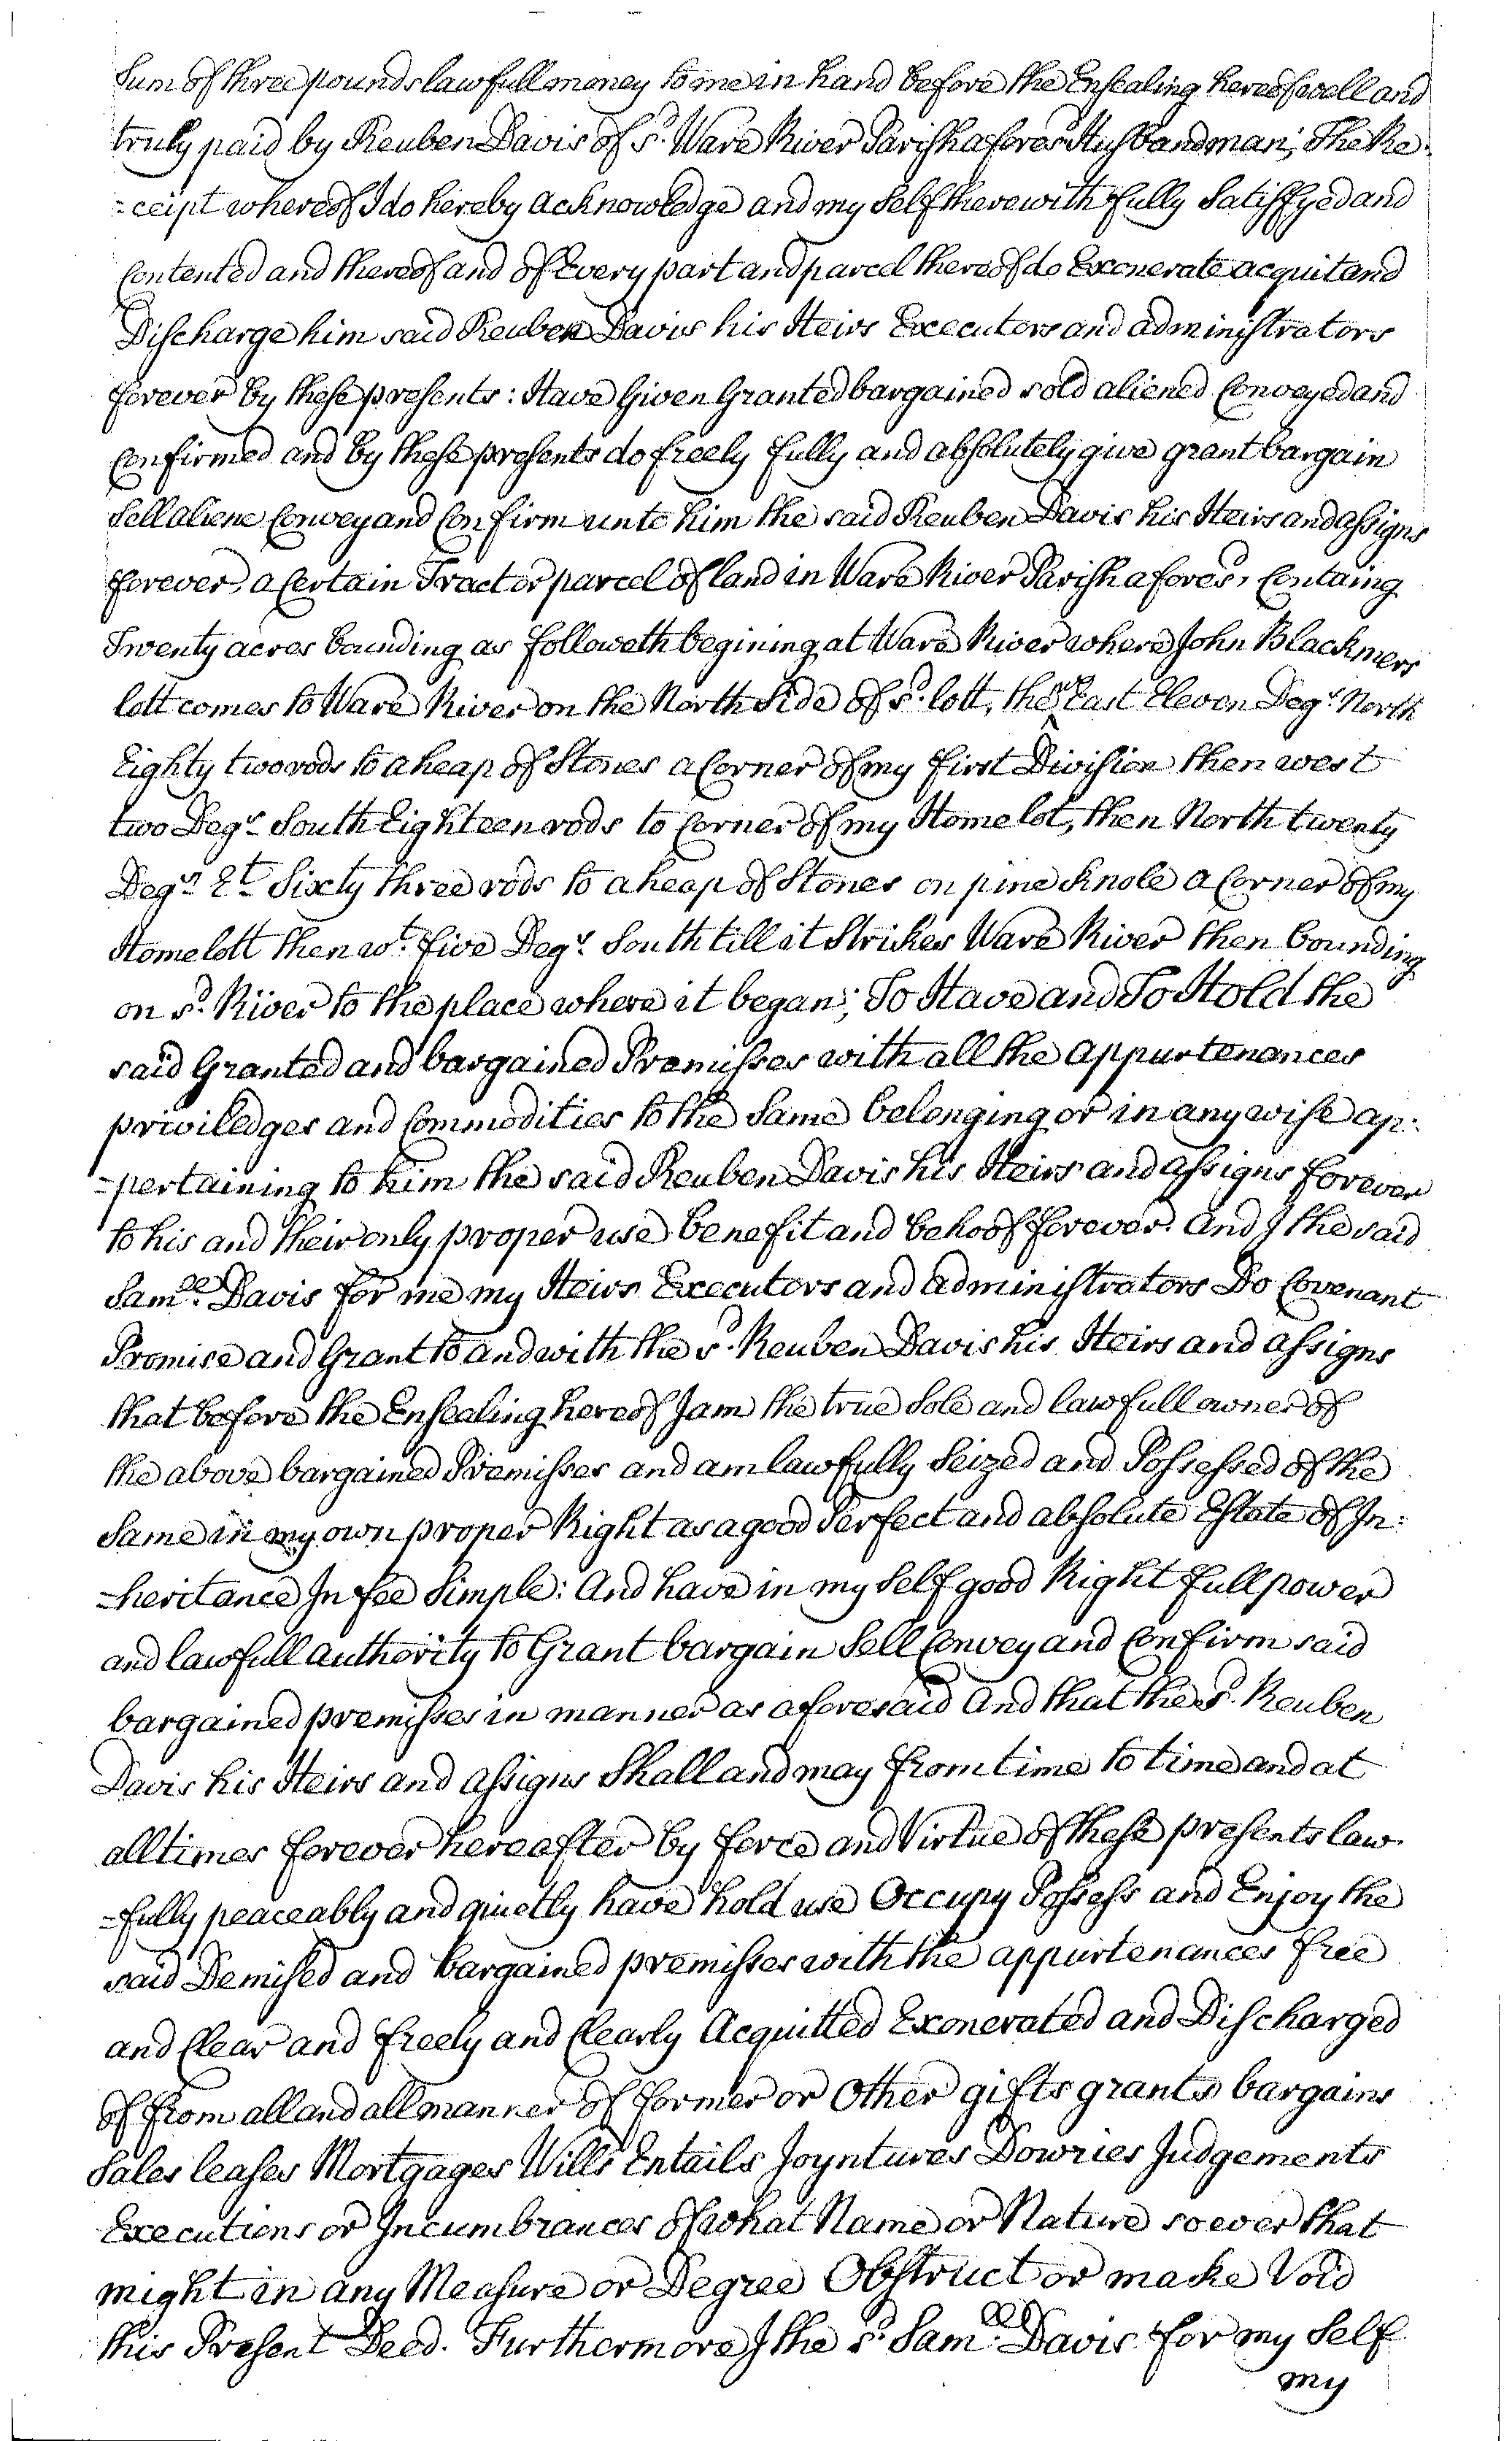 Sum of three pounds lawfull money to me in hand before the Ensealing hereof well and
truly paid by Reuben Davis of sd. Ware River Parish aforesd Husbandman; The Re-
=ceipt whereof I do hereby acknowledge and my self therewith fully Satisfyed and
Contented and thereof and of Every part and parcel thereof do Exonerate acquit and
Discharge him said Reuben Davis his Heirs Executors and administrators
forever by these presents: Have Given Granted bargained sold aliened Conveyed and
Confirmed and by these presents do freely fully and absolutely give grant bargain
Sell aliene Convey and Confirm unto him the said Reuben Davis his Heirs and assigns
forever, a Certain Tract or parcel of land in Ware River Parish aforesd, Containg
Twenty acres bounding as followeth begining at Ware River where John Blackmers
lott comes to Ware River on the North Side of sd. lott, then East Eleven Degrs. North
Eighty two rods to a heap of Stones a Corner of my first Division then west
two Degrs. South Eighteen rods to Corner of my Home lot, then North twenty
Degrs. Et. Sixty three rods to a heap of Stones on pine Knole a Corner of my
Home lott then wt. five Degrs. South till it Strikes Ware River then bounding
on sd. River to the place where it began; To Have and To Hold the
said Granted and bargained Premisses with all the appurtenances
priviledges and Commodities to the Same belonging or in any wise ap:
=pertaining to him the said Reuben Davis his Heirs and assigns forever
to his and their only proper use benefit and behoof forever. And I the said
Samll. Davis for me my Heirs Executors and administrators Do Covenant
Promise and Grant to and with the sd. Reuben Davis his Heirs and assigns
that before the Ensealing hereof I am the true Sole and lawfull owner of
the above bargained Premisses and am lawfully Seized and Possessed of the
Same in my own proper Right as a good Perfect and absolute Estate of In:
=heritance In fee Simple: And have in my self good Right full power
and lawfull authority to Grant bargain Sell Convey and Confirm said
bargained premisses in manner as aforesaid And that the sd. Reuben
Davis his Heirs and assigns Shall and may from time to time and at
all times forever hereafter by force and Virtue of these presents law-
=fully peaceably and quietly have hold use Occupy Possess and Enjoy the
said Demised and bargained premisses with the appurtenances free
and Clear and freely and Clearly Acquitted Exonerated and Discharged
of from all and all manner of former or Other gifts grants bargains
Sales leases Mortgages Wills Entails Joyntures Dowries Judgements
Executions or Incumbrances of what Name or Nature soever that
might in any Measure or Degree Obstruct or make Void
this Present Deed. Furthermore I the sd. Samll. Davis for my Self
my